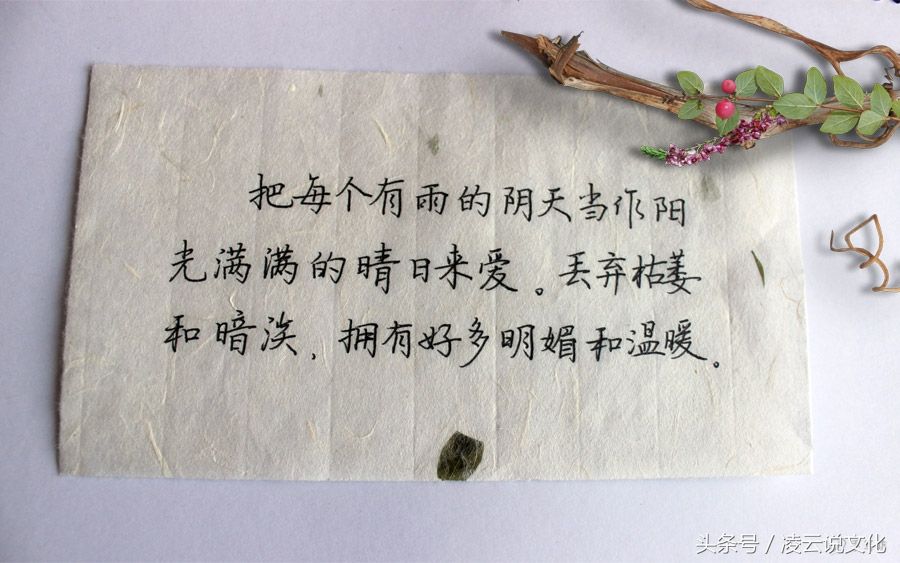 把每个有雨的阴天当作阳
光满满的晴日来爱。丢弃枯萎
和暗淡，拥有好多明媚和温暖。
头条号/凌云说文化